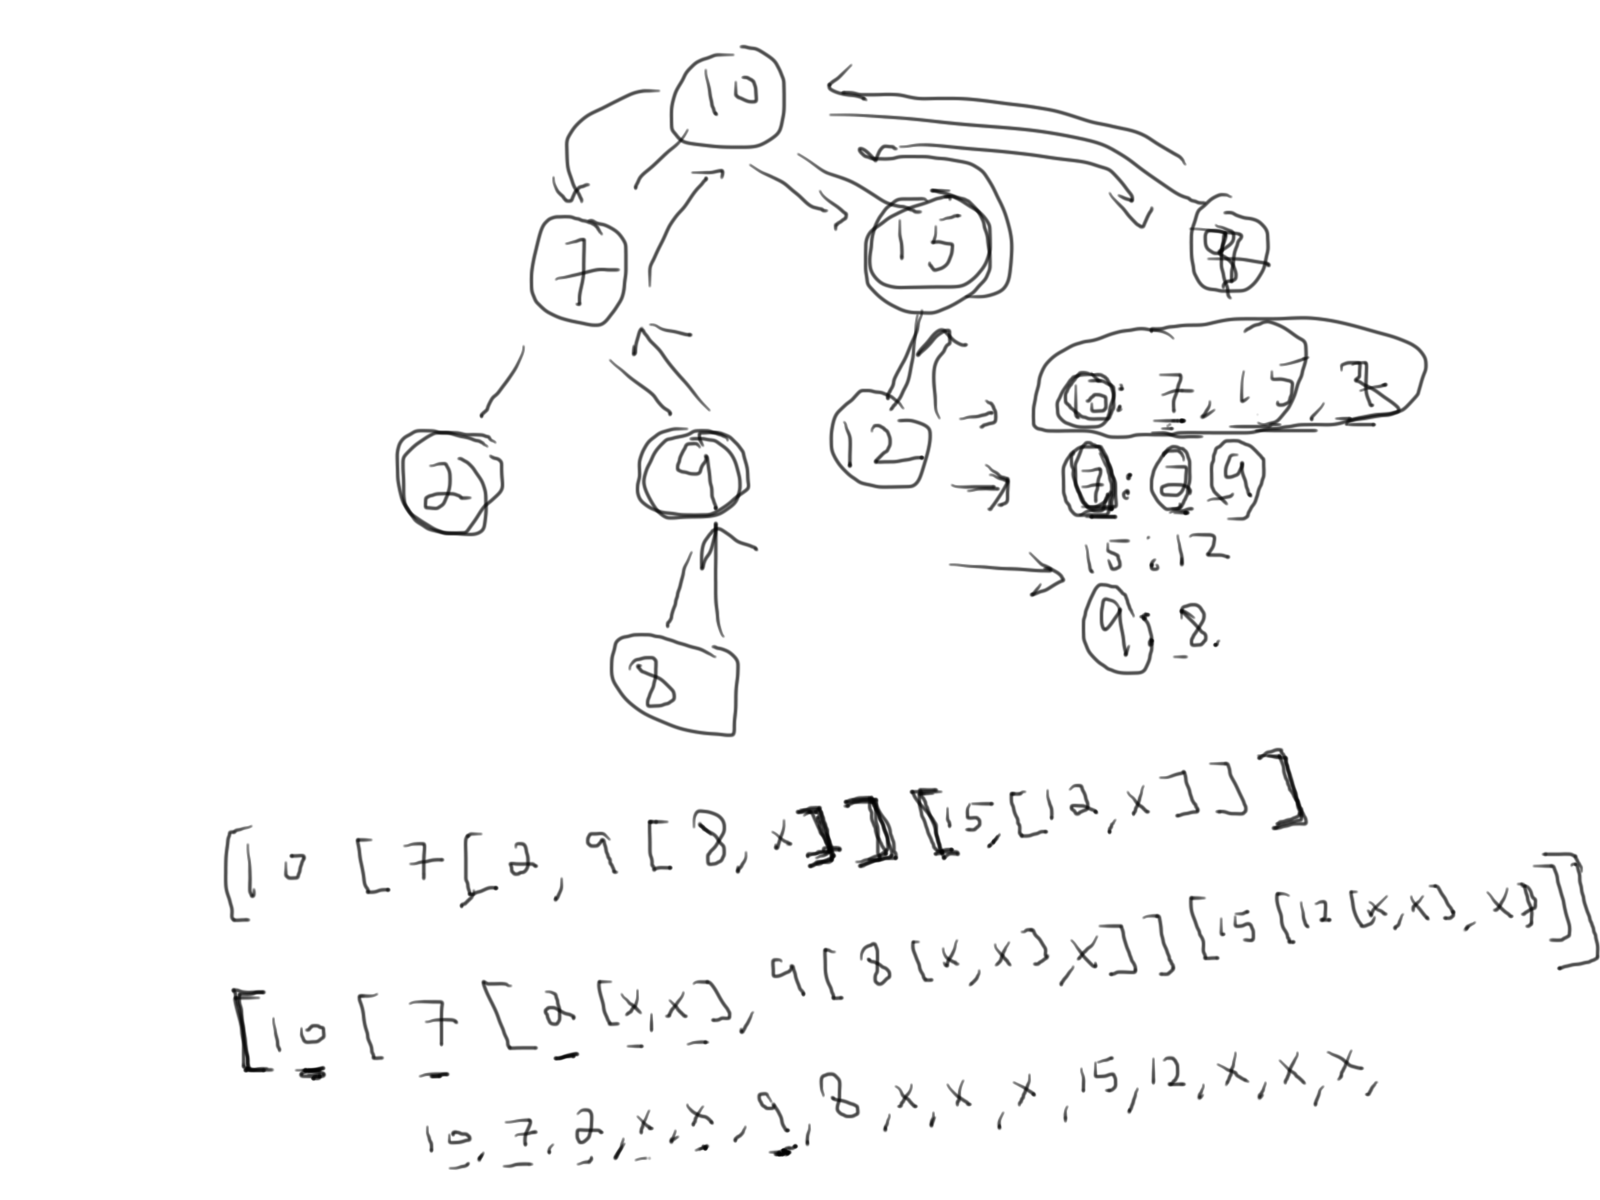 10
7 15
2 9 12
8
10: 7, 15, 7
7: 2 9
15: 12
9: 8.
[10 [7[2, 9[8, x]]][15,[12,x]]]
[10[7[2[x,x], 9[8[x,x],x]][15[12[x,x], x]]]
10, 7, 2, x, x, 9, 8, x, x, x, 15, 12, x, x, x,